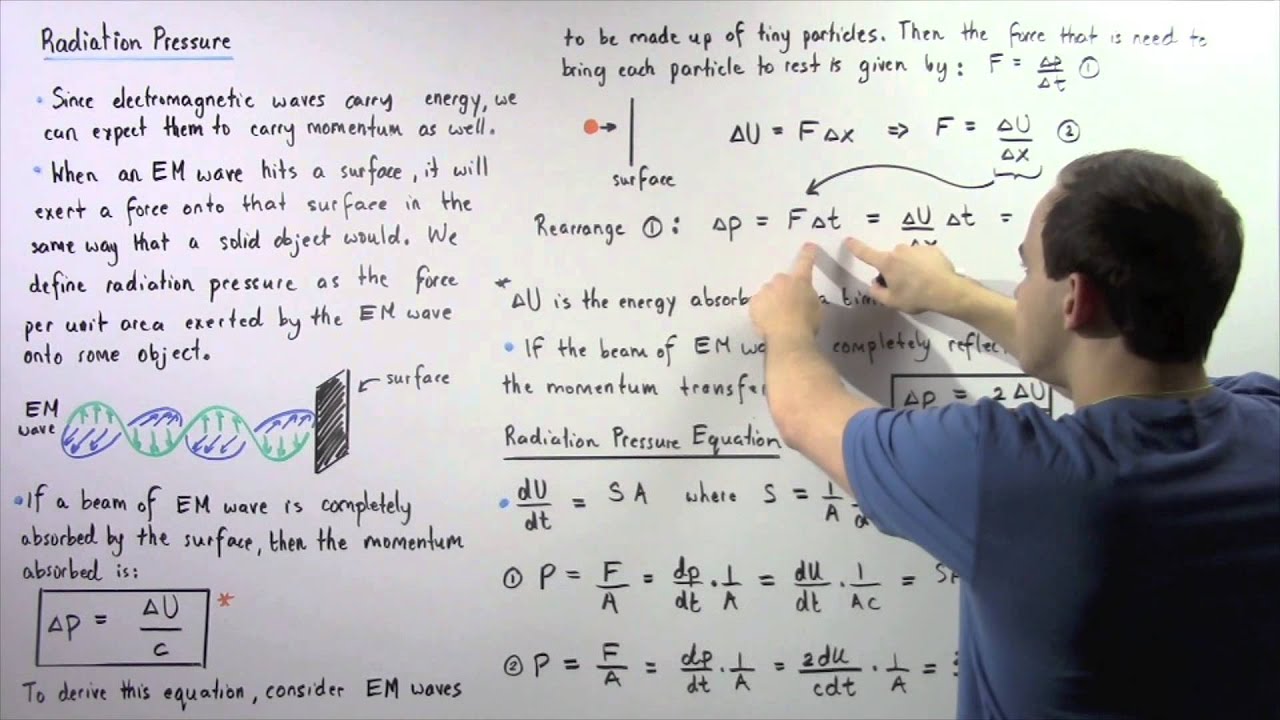 Radiation Pressure
• Since electromagnetic waves carry energy, we
can expect them to carry momentum as well.
• When an EM wave hits a surface, it will
exert a force onto that surface in the
same way that a solid object would. We
define radiation pressure as the force
per unit area exerted by the EM wave
onto some object.
EM
wave
surface
• If a beam of EM wave is completely
absorbed by the surface, then the momentum
absorbed is:
Δp = ΔU/c *
To derive this equation, consider EM waves
to be made up of tiny particles. Then the force that is need to
bring each particle to rest is given by: F = Δp/Δt ①
surface
ΔU = FΔx ⇒ F = ΔU/Δx ②
Rearrange ①: Δp = FΔt = ΔU/Δx Δt =
* ΔU is the energy
• If the beam of EM completely
the momentum
Δp = 2ΔU
Radiation Pressure Equation
• dU/dt = SA where S = 1/A
① P = F/A = dp/dt · 1/A = dU/dt · 1/Ac =
② P = F/A = dp/dt · 1/A = 2dU/cdt · 1/A =